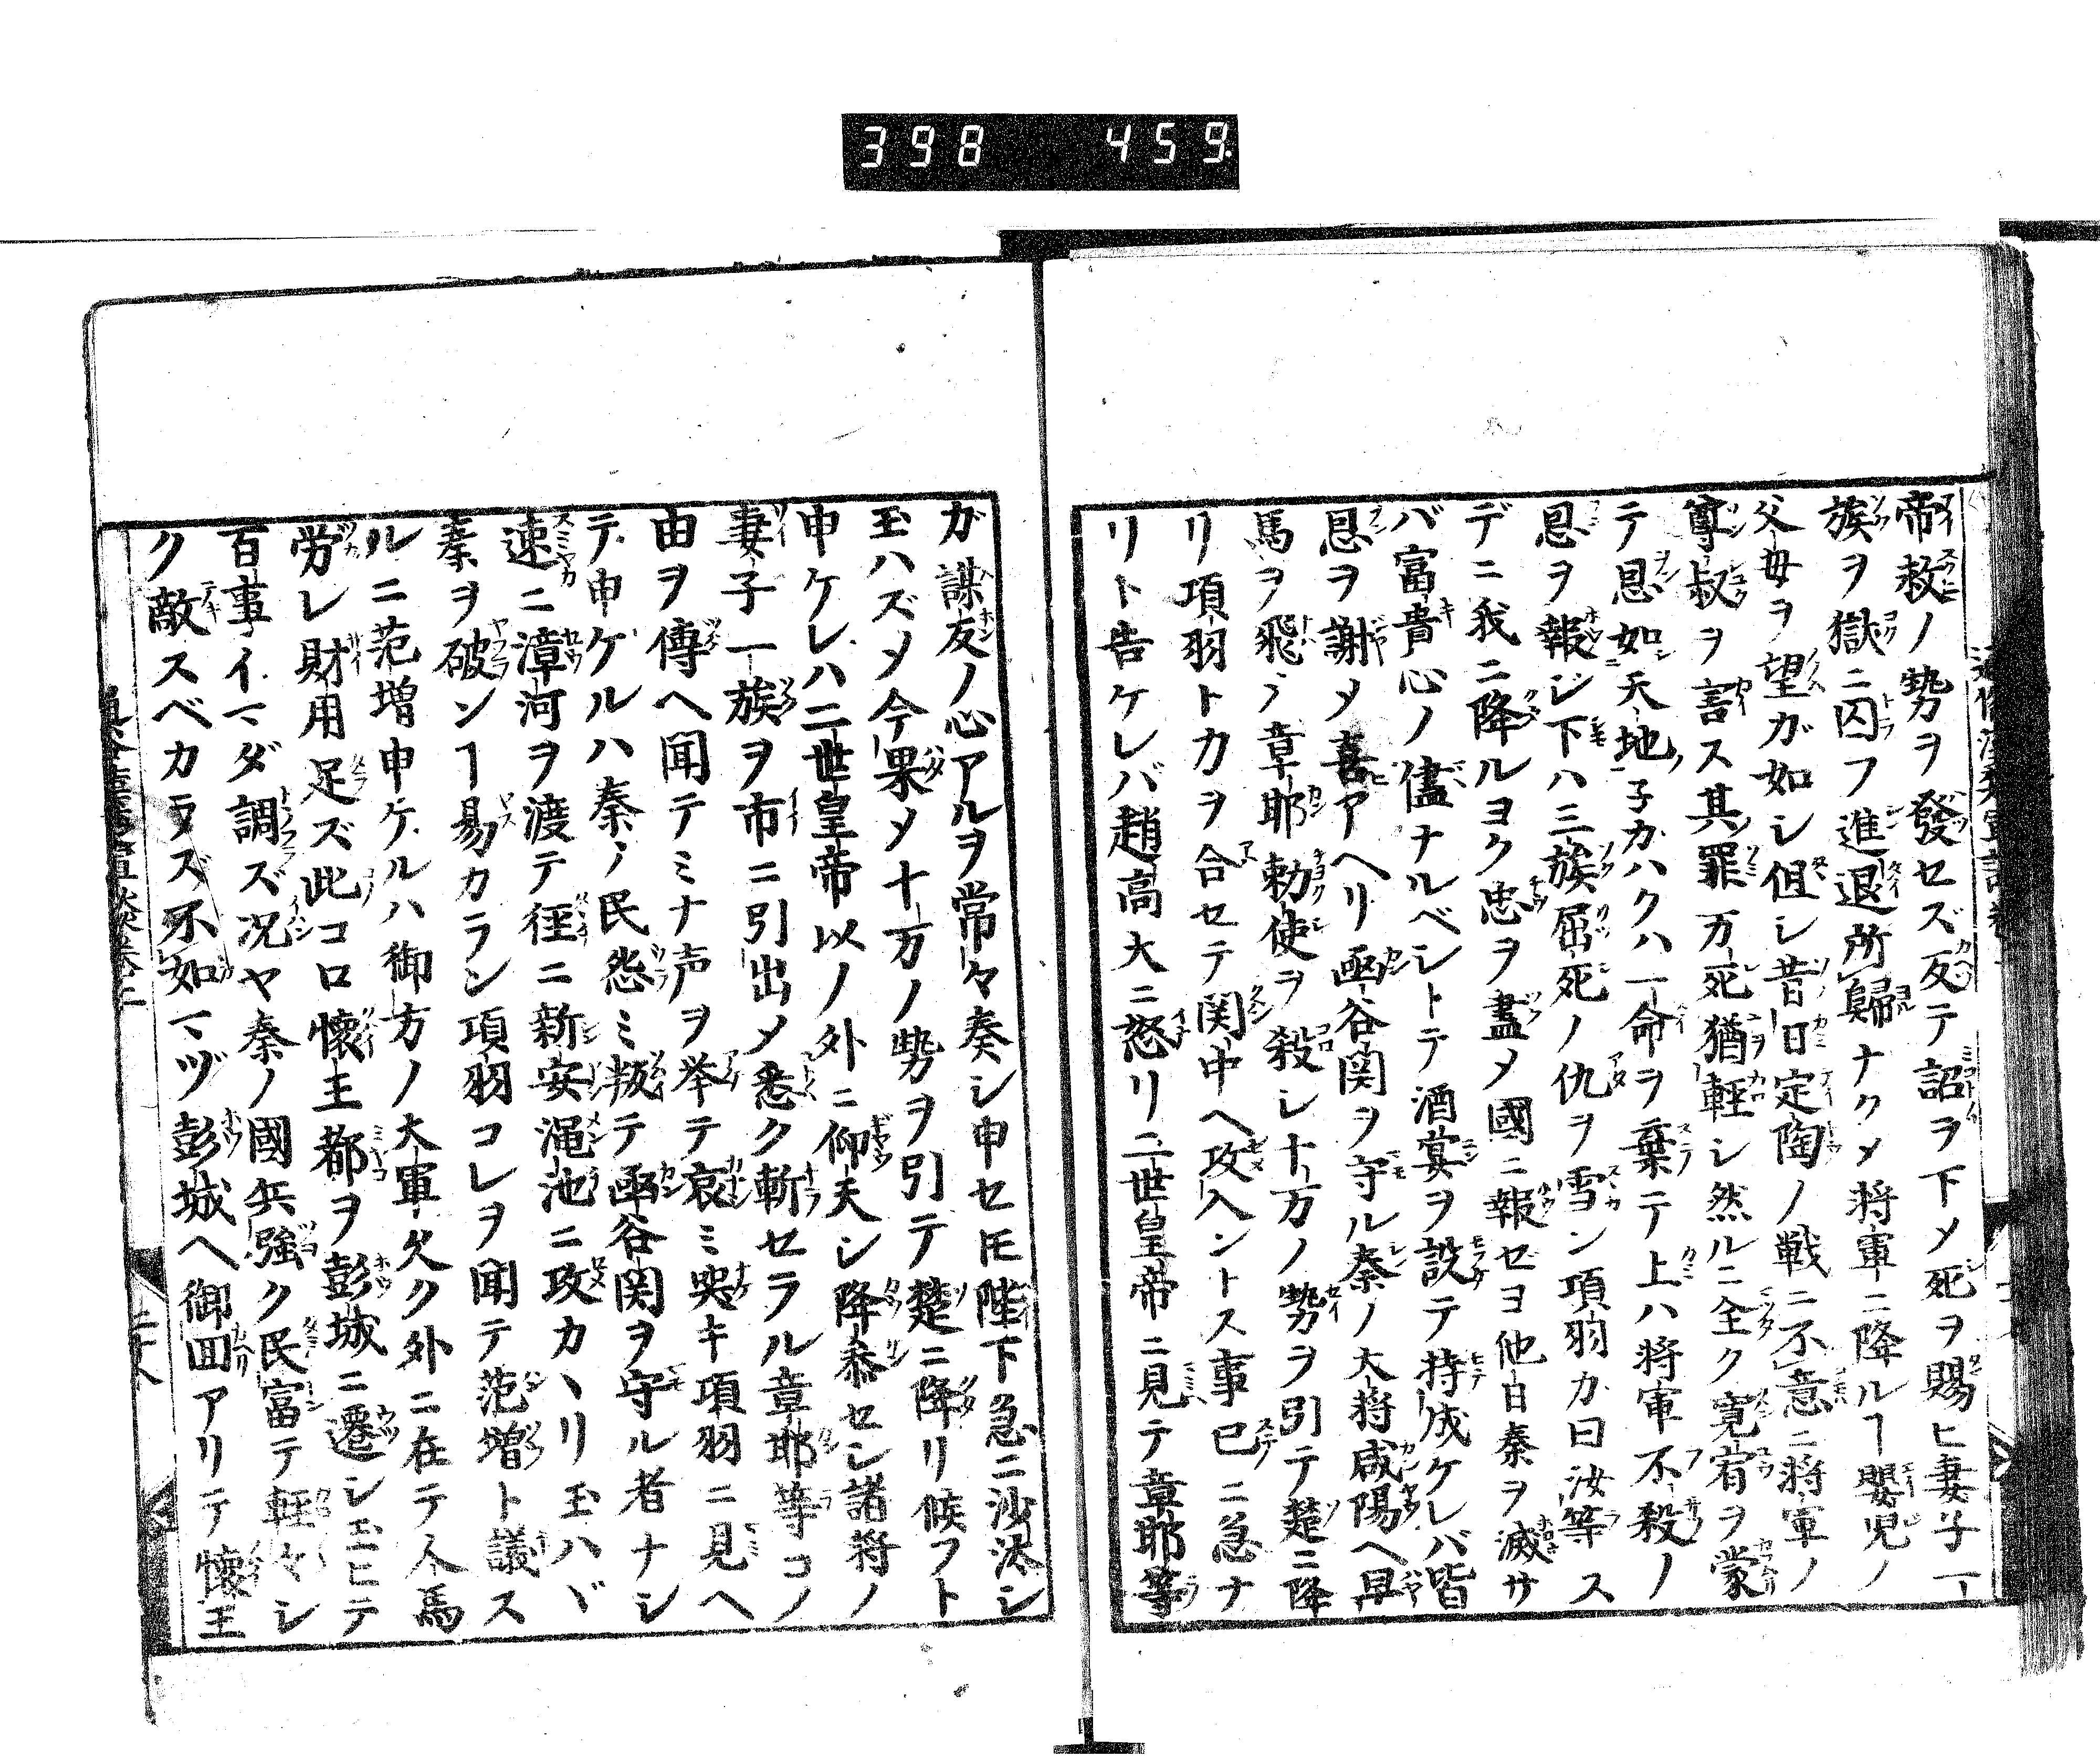 398 459
帝救ノ勢ヲ發セズ反テ詔ヲ下メ死ヲ賜ヒ妻子一
族ヲ獄ニ囚フ進退所歸ナクメ将軍ニ降ルヿ嬰児ノ
父母ヲ望ガ如シ但シ昔日定陶ノ戦ニ不意ニ將軍ノ
尊叔ヲ害ス其罪万死猶輕シ然ルニ全ク寛宥ヲ蒙
テ恩如天地子カハクハ一命ヲ棄テ上ハ将軍不殺ノ
恩ヲ報ジ下ハ三族屈死ノ仇ヲ雪ン項羽カ曰汝等ス
デニ我ニ降ルヨク忠ヲ盡メ國ニ報ゼヨ他日秦ヲ滅サ
バ富貴心ノ儘ナルベシトテ酒宴ヲ設テ持成ケレバ皆
恩ヲ謝メ喜アヘリ函谷関ヲ守ル秦ノ大將咸陽ヘ早
馬ヲ飛シ章邯勅使ヲ殺シ十万ノ勢ヲ引テ楚ニ降
リ項羽トカヲ合セテ関中ヘ攻入ントス事已ニ急ナ
リト告ケレバ趙高大ニ怒リ二世皇帝ニ見テ章邯等
ガ謀反ノ心アルヲ常々奏シ申セ𪜈陛下急ニ沙汰シ
玉ハズメ今果メ十万ノ勢ヲ引テ楚ニ降リ候フト
申ケレハ二世皇帝以ノ外ニ仰天シ降叅セシ諸将ノ
妻子一族ヲ市ニ引出メ悉ク斬セラル章邯等コノ
由ヲ傳ヘ聞テミナ声ヲ挙テ哀ミ哭キ項羽ニ見ヘ
テ申ゲルハ秦ノ民怨ミ叛テ函谷関ヲ守ル者ナシ
速ニ漳河ヲ渡テ徑ニ新安澠池ニ攻カヽリ玉ハヾ
秦ヲ破ンヿ易カラン項羽コレヲ聞テ范増ト議ス
ルニ范増申ケルハ御方ノ大軍久ク外ニ在テ人馬
労レ財用足ズ此コロ懐王都ヲ彭城ニ遷シ玉ヒテ
百事イマダ調ズ況ヤ秦ノ國兵強ク民富テ輕々シ
ク敵スベカラズ不如マヅ彭城ヘ御囬アリテ懐王